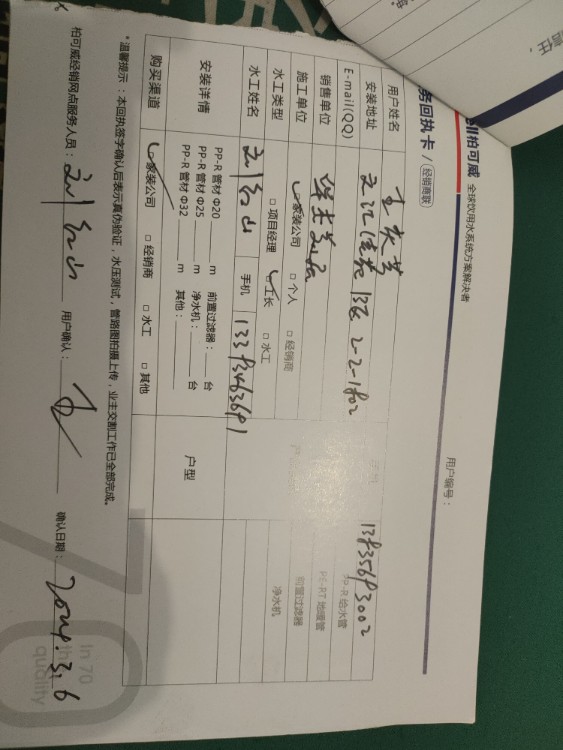 柏可威 全球饮用水系统方案解决者
务回执卡 / 经销商联
用户编号：
用户姓名
安装地址 2-2-1802
手机 13835693002
E-mail(QQ)
PP-R 给水管
销售单位
PE-RT 地暖管
施工单位 家装公司 □ 个人 □ 经销商
前置过滤器
水工类型 □ 项目经理 工长 □ 水工
净水机
水工姓名 刘红山 手机 13393463691
安装详情
PP-R 管材 Φ20 m 前置过滤器： 台
PP-R 管材 Φ25 m 净水机： 台
PP-R 管材 Φ32 m 其他：
户型
购买渠道 家装公司 □ 经销商 □ 水工 □ 其他
*温馨提示：本回执签字确认后表示真伪验证，水压测试，管路图拍摄上传，业主交割工作已全部完成。
柏可威经销网点服务人员：刘红山 用户确认： 确认日期：2024.3.6
In 70
quality